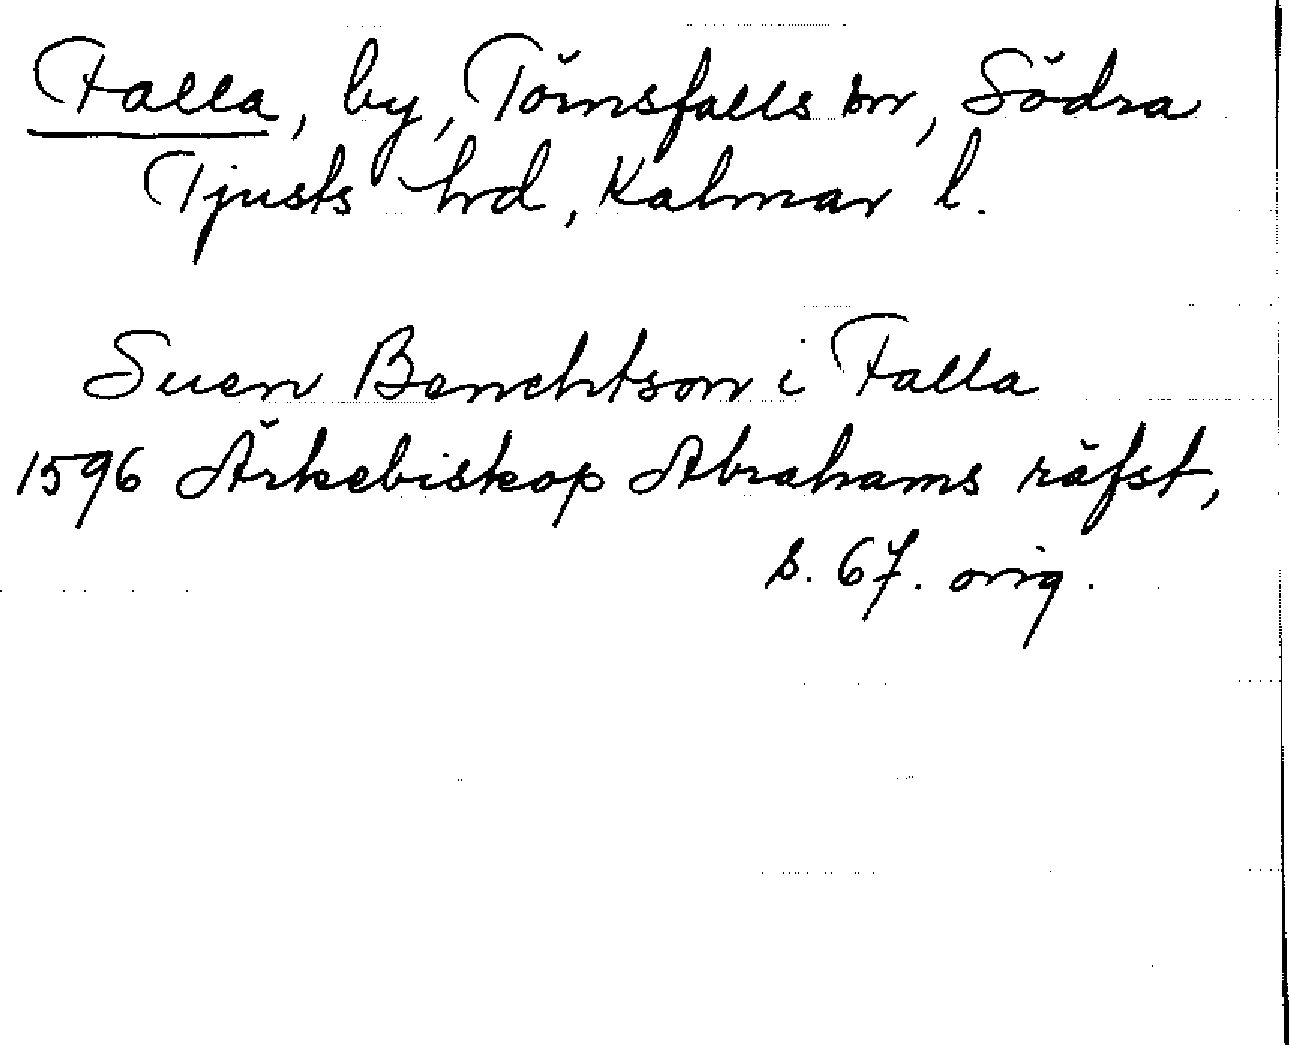 Falla, by, Törnsfalls sn, Södra
Tjusts hrd, Kalmar l.
Suen Benchtson i Falla
1596 Ärkebiskop Abrahams räfst,
s. 67. orig.